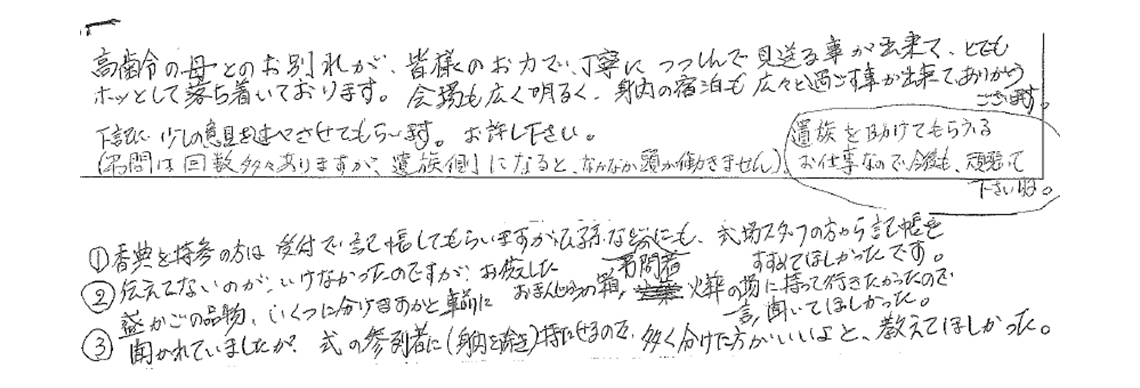 高齢の母とのお別れが、皆様のお力で、丁寧につつしんで見送る事が出来て、とても
ホッとして落ち着いております。会場も広く明るく、身内の宿泊も広々と過ごす事が出来てありがとう
ございます。
下記に少しの意見を述べさせてもらいます。お許し下さい。
(弔問は回数多々ありますが、遺族側になると、なかなか頭が働きません)
遺族を助けてもらえる
お仕事なので、今後も、頑張って
下さいね。
①香典を持参の方は受付で記帳してもらいますが、お孫などにも、式場スタッフの方から記帳を
弔問者
すすめてほしかったです。
②伝えてないのが、いけなかったのですが、お供えした
おまんじゅうの箱、火葬の場に持って行きたかったので
一言、聞いてほしかった。
③盛かごの品物、いくつに分けますかと事前に
聞かれていましたが、式の参列者に(身内を除き)持たせるので、多く分けた方がいいよと、教えてほしかった。